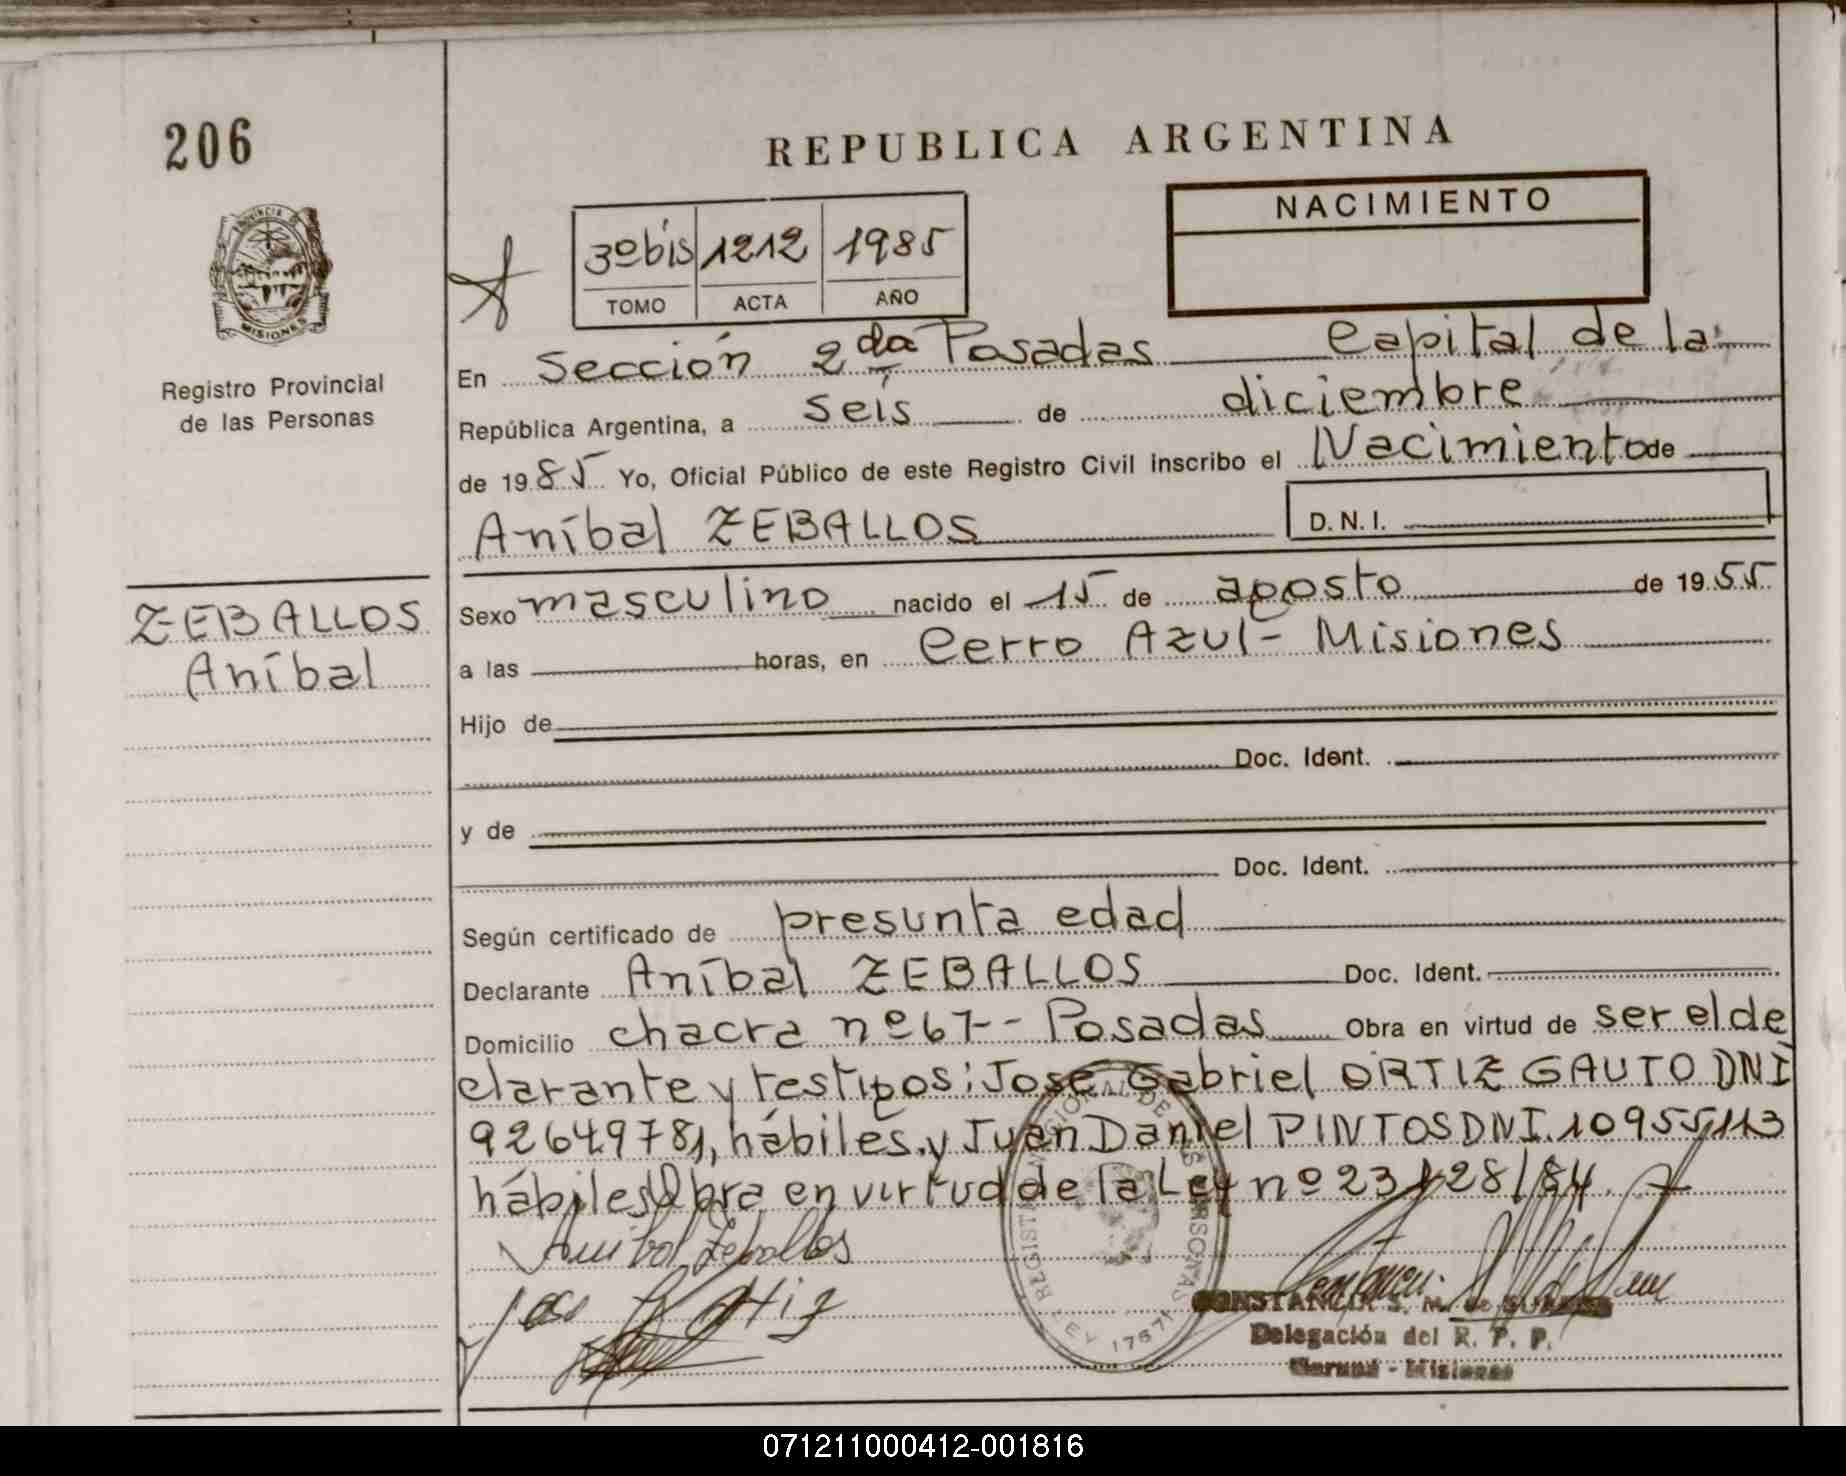 206
REPUBLICA ARGENTINA
NACIMIENTO
3º bis 1212 1985
TOMO ACTA AÑO
PROVINCIA DE
MISIONES
Registro Provincial
de las Personas
En Sección 2da Posadas Capital de la
República Argentina, a seis de diciembre
de 1985 Yo, Oficial Público de este Registro Civil inscribo el Nacimiento de
Aníbal ZEBALLOS D.N.I.
ZEBALLOS
Aníbal
Sexo masculino nacido el 15 de agosto de 1955
a las horas, en Cerro Azul - Misiones
Hijo de
Doc. Ident.
y de
Doc. Ident.
Según certificado de presunta edad
Declarante Aníbal ZEBALLOS Doc. Ident.
Domicilio chacra nº 67 - Posadas Obra en virtud de ser el de
clarante y testigos: José Gabriel ORTIZ GAUTO DNI
92649781, hábiles y Juan Daniel PINTOS DNI. 10955113
hábiles Obra en virtud de la Ley nº 23128/84.
Anibal Zeballos
Jose Ortiz
CONSTANCIA S. M. de
Delegación del R. P. P.
Garupá - Misiones
071211000412-001816